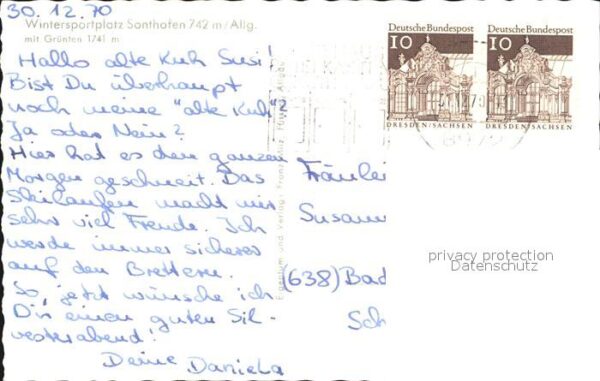 30.12.70
Wintersportplatz Sonthofen 742 m / Allg.
mit Grünten 1741 m
Hallo alte Kuh Susi!
Bist Du überhaupt
noch meine "alte Kuh"?
Ja oder Nein?
Hier hat es den ganzen
Morgen geschneit. Das
Skilaufen macht mir
sehr viel Freude. Ich
werde immer sicherer
auf den Brettern.
So, jetzt wünsche ich
Dir einen guten Sil-
vesterabend!
Deine Daniela
Eigentum und Verlag: Franz
Deutsche Bundespost
10
DRESDEN/SACHSEN
Deutsche Bundespost
10
DRESDEN/SACHSEN
Fräulei
Susann
(638) Bad
Sch
privacy protection
Datenschutz